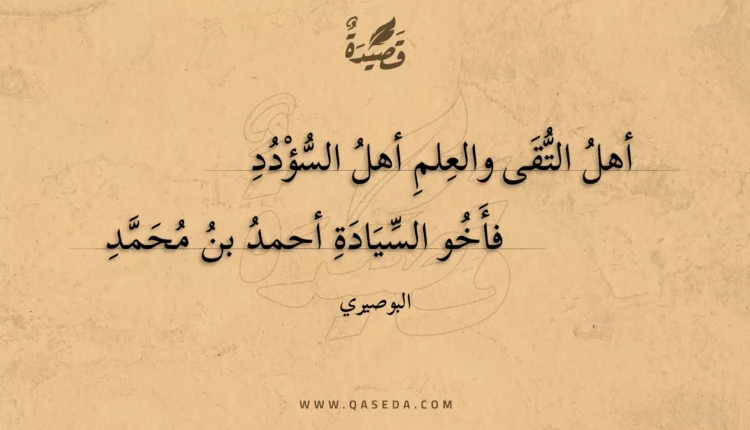 قَصِيْدَةٌ
أهلُ التُّقَى والعِلمِ أهلُ السُّؤْدُدِ
فأَخُو السِّيَادَةِ أحمدُ بنُ مُحَمَّدِ
البوصيري
WWW.QASEDA.COM